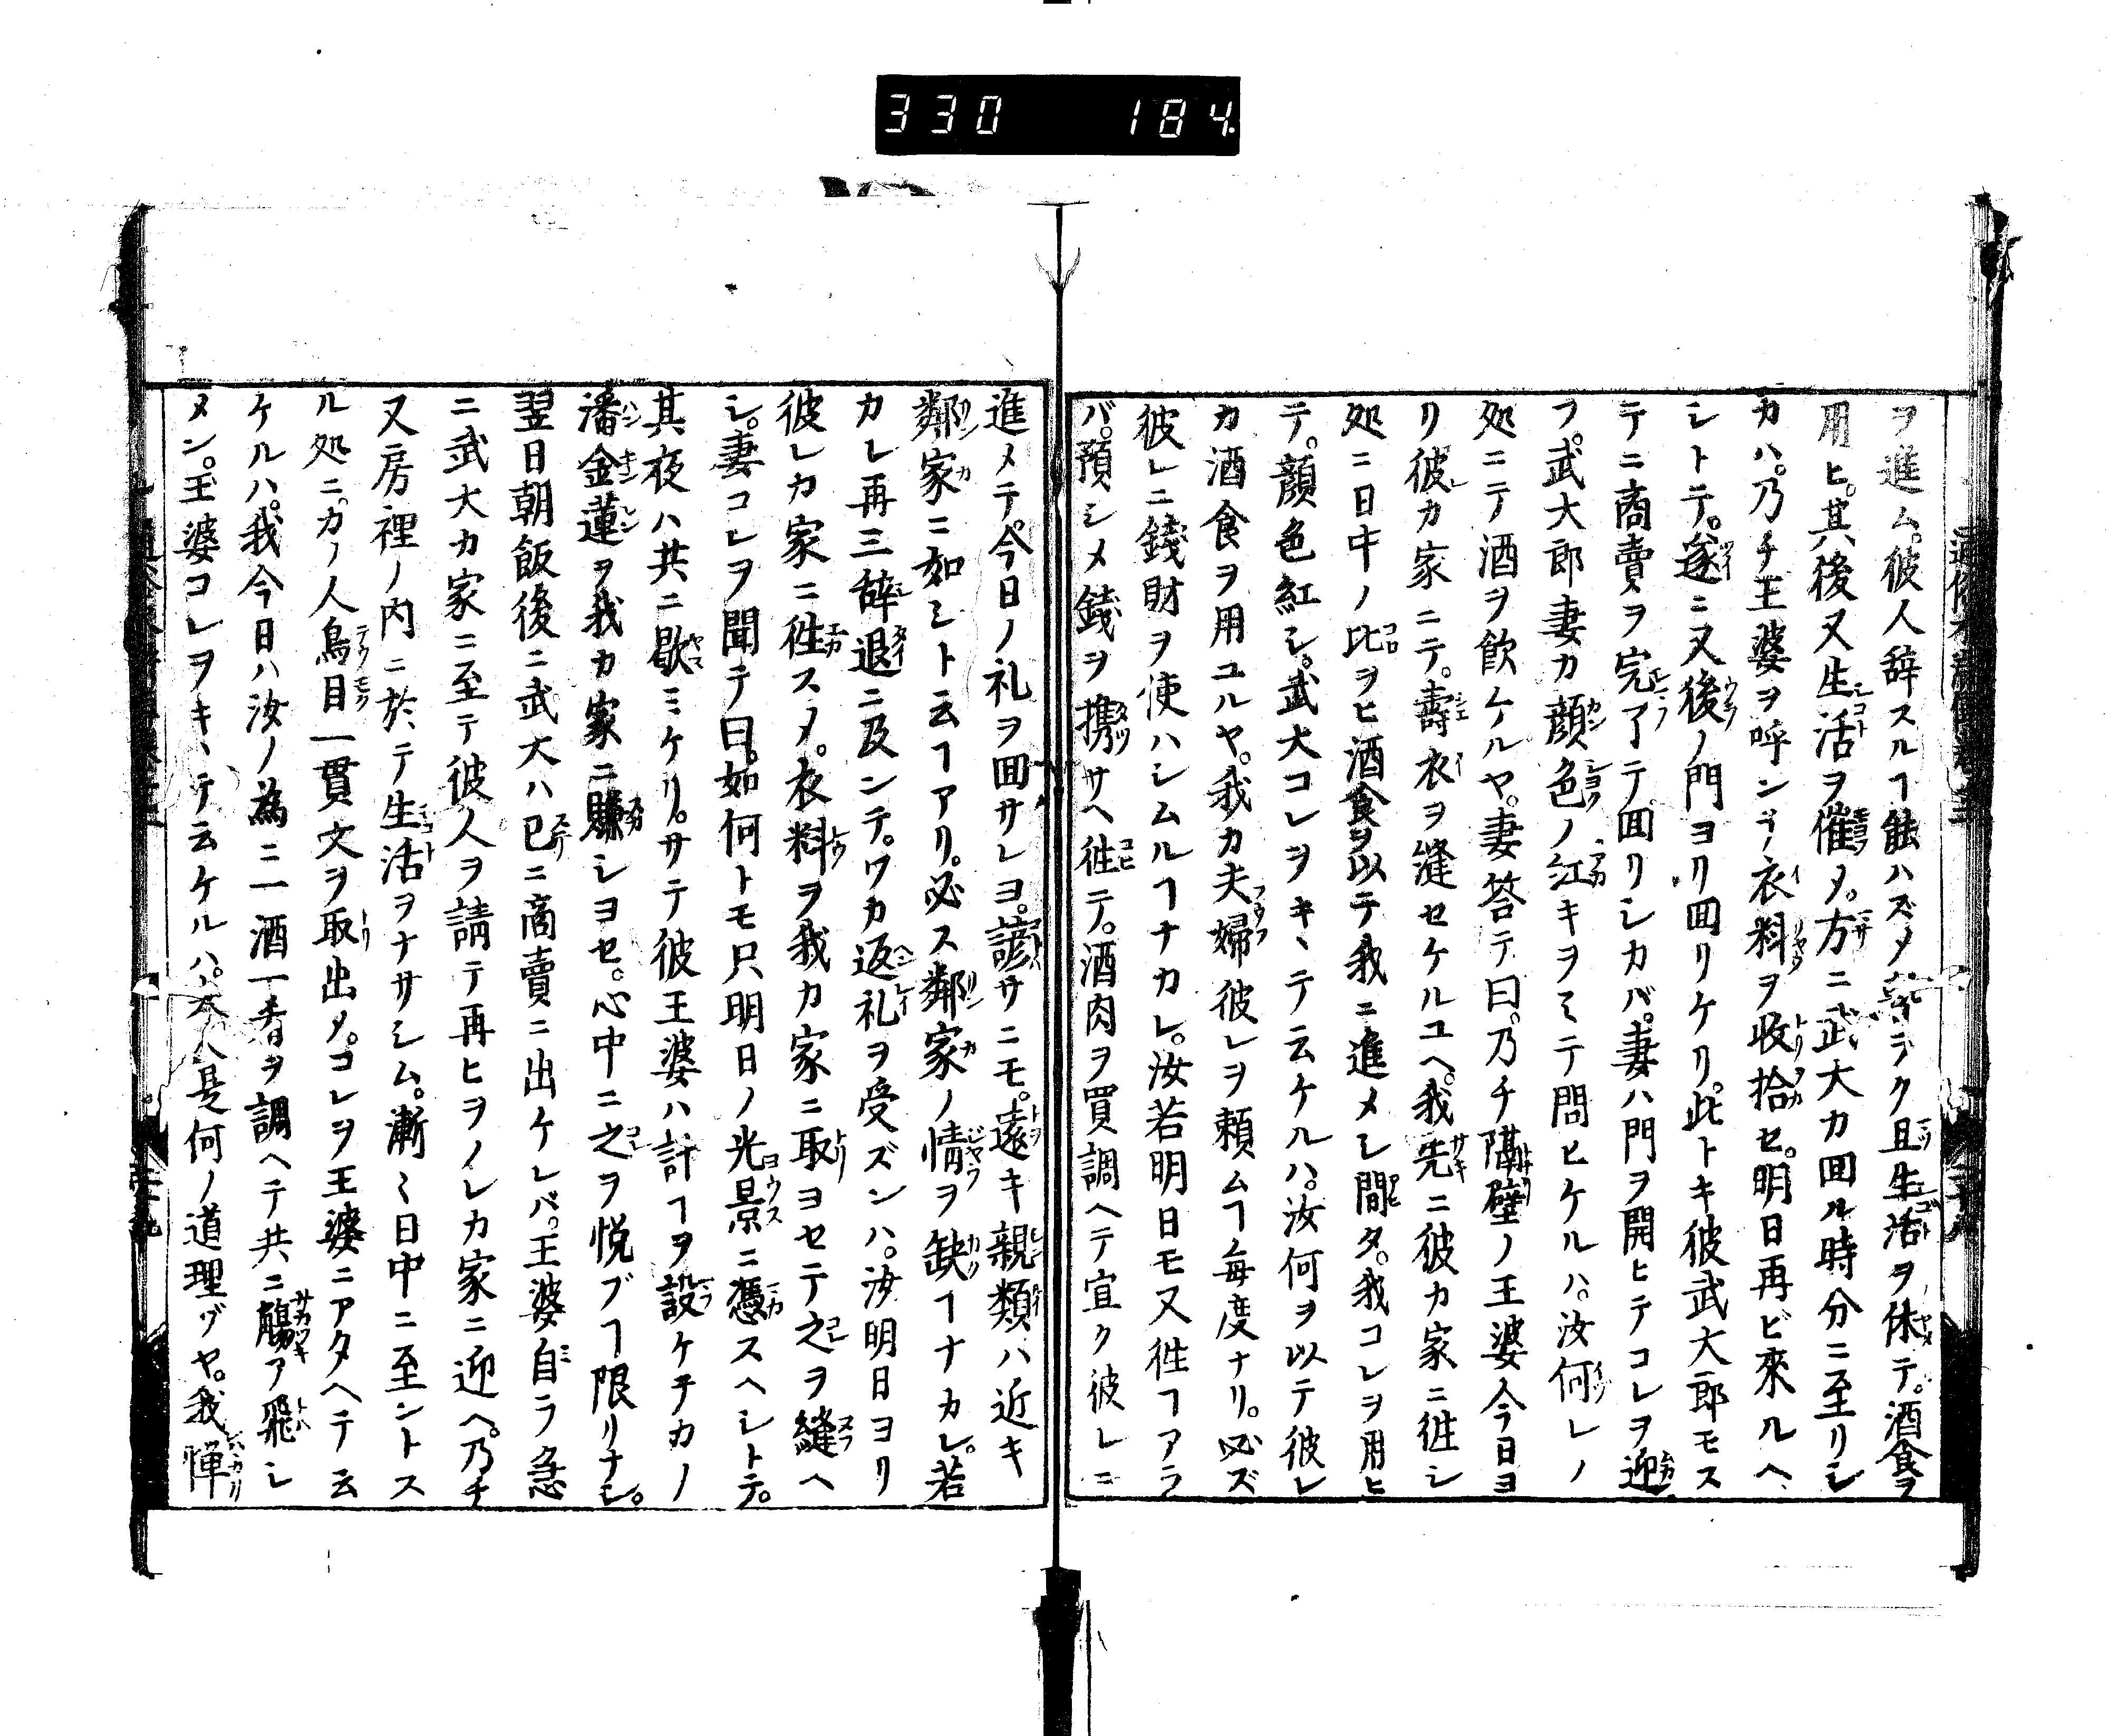 330 184
ヲ進ム。彼人辞スルヿ能ハズメ 且生活ヲ休テ。酒食ヲ
用ヒ。其後又生活ヲ催タ。方ニ武大カ回ル時分ニ至リシ
カハ。乃チ王婆ヲ呼ンデ衣料ヲ收拾セ。明日再ビ來ルヘ
シトテ。遂ニ又後ノ門ヨリ回リケリ。此トキ彼武大郎モス
テニ商賣ヲ完了テ回リシカバ。妻ハ門ヲ開ヒテコレヲ迎
フ。武大郎妻カ顔色ノ紅キヲミテ問ヒケルハ。汝何レノ
処ニテ酒ヲ飲ケルヤ。妻荅テ曰。乃チ隣壁ノ王婆今日ヨ
リ彼カ家ニテ。壽衣ヲ縫セケルユヘ。我先ニ彼カ家ニ徃シ
処ニ日中ノ比ヲヒ酒食ヲ以テ我ニ進メシ間タ。我コレヲ用ヒ
テ。顔色紅シ。武大コレヲキヽテ云ケルハ。汝何ヲ以テ彼レ
カ酒食ヲ用ユルヤ。我カ夫婦彼レヲ頼ムヿ毎度ナリ。必ズ
彼レニ錢財ヲ使ハシムルヿナカレ。汝若明日モ又徃ヿアラ
バ。預シメ錢ヲ携サヘ徃テ。酒肉ヲ買調ヘテ宜ク彼レニ
進メテ。今日ノ礼ヲ回サレヨ。諺サニモ。遠キ親類ハ近キ
鄰家ニ如シト云ヿアリ。必ス鄰家ノ情ヲ缺ヿナカレ。若
カレ再三辞退ニ及ンテ。ワカ返礼ヲ受ズンハ。汝明日ヨリ
彼レカ家ニ徃スメ。衣料ヲ我カ家ニ取ヨセテ之ヲ縫ヘ
シ。妻コレヲ聞テ曰。如何トモ只明日ノ光景ニ憑スヘシトテ。
其夜ハ共ニ歇ミケリ。サテ彼王婆ハ計ヿヲ設ケテカノ
潘金蓮ヲ我カ家ニ賺シヨセ。心中ニ之ヲ悦ブヿ限リナシ。
翌日朝飯後ニ武大ハ已ニ商賣ニ出ケレバ。王婆自ラ急
ニ武大カ家ニ至テ彼人ヲ請テ再ヒヲノレカ家ニ迎ヘ。乃チ
又房裡ノ内ニ於テ生活ヲナサシム。漸〻日中ニ至ントス
ル処ニ。カノ人鳥目一貫文ヲ取出タ。コレヲ王婆ニアタヘテ云
ケルハ。我今日ハ汝ノ為ニ一酒一肴ヲ調ヘテ共ニ觴ヲ飛シ
メン。王婆コレヲキヽテ云ケルハ。夫人是何ノ道理ゾヤ。我憚